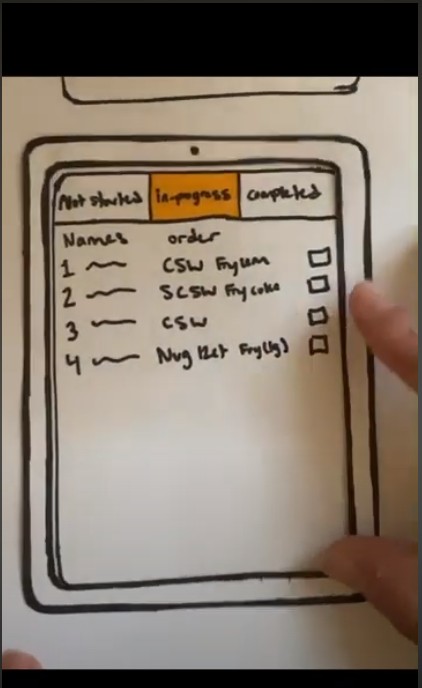 Not started in-progress completed
Names order
1 CSW Fry Lem
2 SCSW Fry coke
3 CSW
4 Nug 12ct Fry (lg)